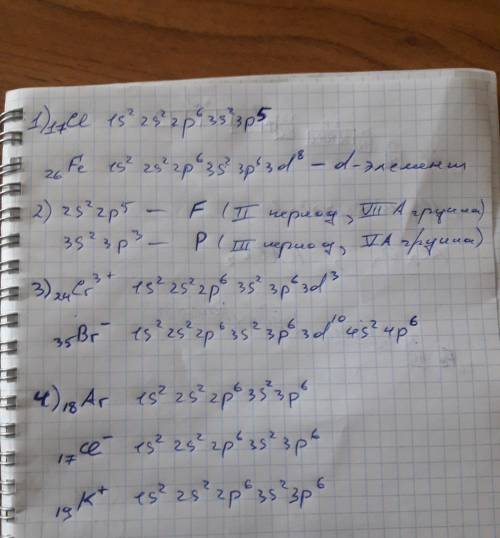 1) ₁₇Cl 1s² 2s² 2p⁶ 3s² 3p⁵
₂₆Fe 1s² 2s² 2p⁶ 3s² 3p⁶ 3d⁸ – d-элемент
2) 2s² 2p⁵ – F (II период, VII A группа)
3s² 3p³ – P (III период, VA группа)
3) ₂₄Cr³⁺ 1s² 2s² 2p⁶ 3s² 3p⁶ 3d³
₃₅Br⁻ 1s² 2s² 2p⁶ 3s² 3p⁶ 3d¹⁰ 4s² 4p⁶
4) ₁₈Ar 1s² 2s² 2p⁶ 3s² 3p⁶
₁₇Cl⁻ 1s² 2s² 2p⁶ 3s² 3p⁶
₁₉K⁺ 1s² 2s² 2p⁶ 3s² 3p⁶